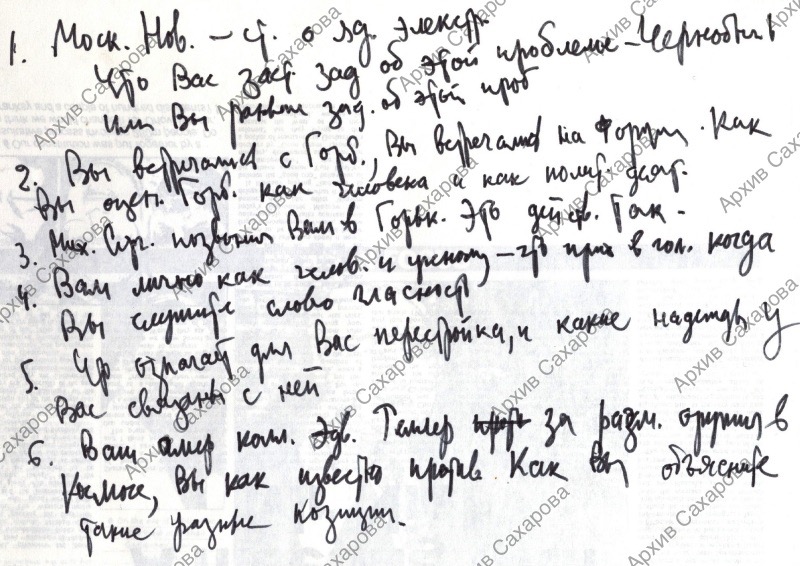 1. Моск. Нов. – ст. о яд. электр.
Что Вас заст. зад об этой проблеме – Чернобыль
или Вы раньше зад. об этой проб
2. Вы встречались с Горб., Вы встречались на Форуме. Как
Вы оцен. Горб. как человека и как полит. деят.
3. Мих. Серг. позвонил Вам в Горьк. Это действ. так –
4. Вам лично как челов. и ученому – что прих в гол. когда
Вы слышите слово гласность
5. Что означает для Вас перестройка, и какие надежды у
Вас связаны с ней
6. Ваш амер колл. Эдв. Теллер за разм. оружия в
Космосе, Вы как известно против Как Вы объясните
такие разные позиции.
Архив Сахарова